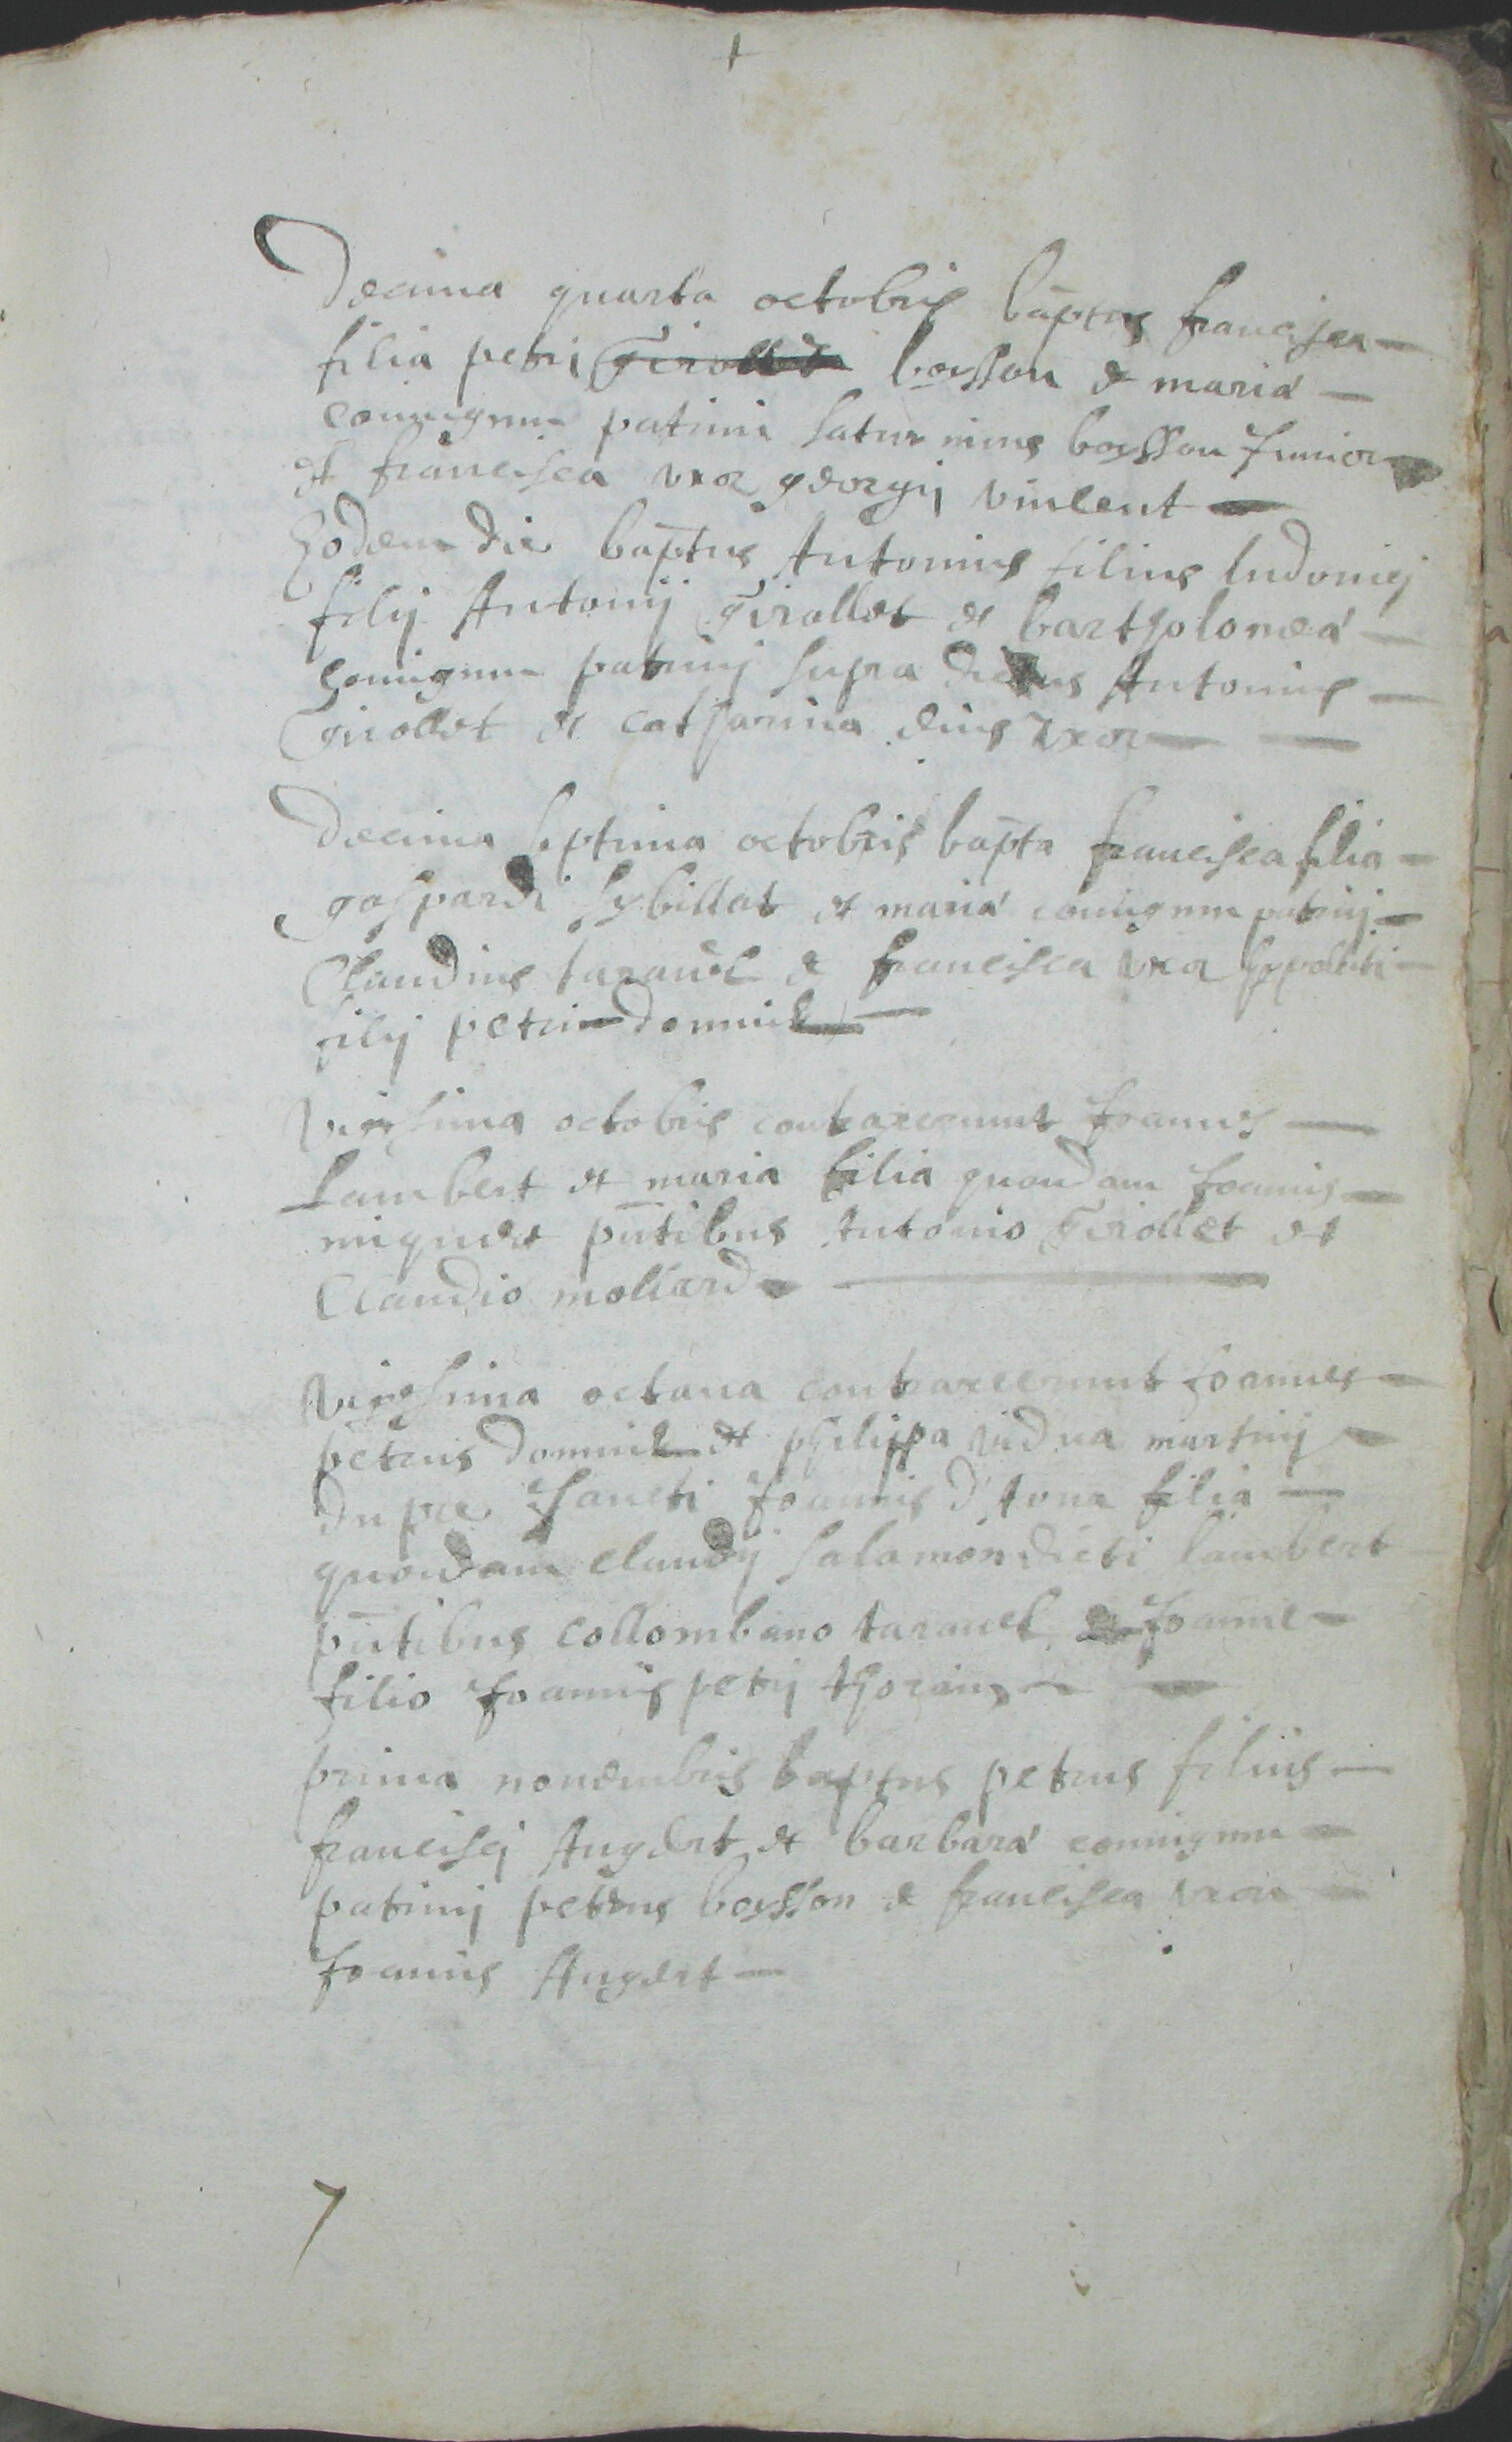 Decima quarta octobris bap̄tus francisca
filia petri Girollet boysson & maria
coniugum patrini saturninus boysson Junior
et francisca uxor georgij vincent
Eodem die bap̄tus Antonius filius ludovici
filij Antonij Girollet et bartholomea
coniugum patrinj supra dictus Antonius
Girollet et catharina eius uxor
Decima septima octobris bap̄ta francisca filia
gaspardi sybillat et maria coniugum patrinj
Claudius taravel & francisca uxor hypoliti
filij petri domnick
Vigesima octobris contraxerunt Joannes
Lambert et maria filia quondam Joannis
miguet pn̄tibus Antonio Girollet et
Claudio mollard
Vigesima octava contraxerunt Joannes
petrus domnick et philippa vidua martinj
dupre Sancti Joannis d'Arva filia
quondam claudij salamon dicti lambert
pn̄tibus collombano taravel & Joanne
filio Joannis petrj thorains
prima novembris baptus petrus filius
franciscj Augert et barbara coniugum
patrinj petrus boysson & francisca uxor
Joannis Augert
7